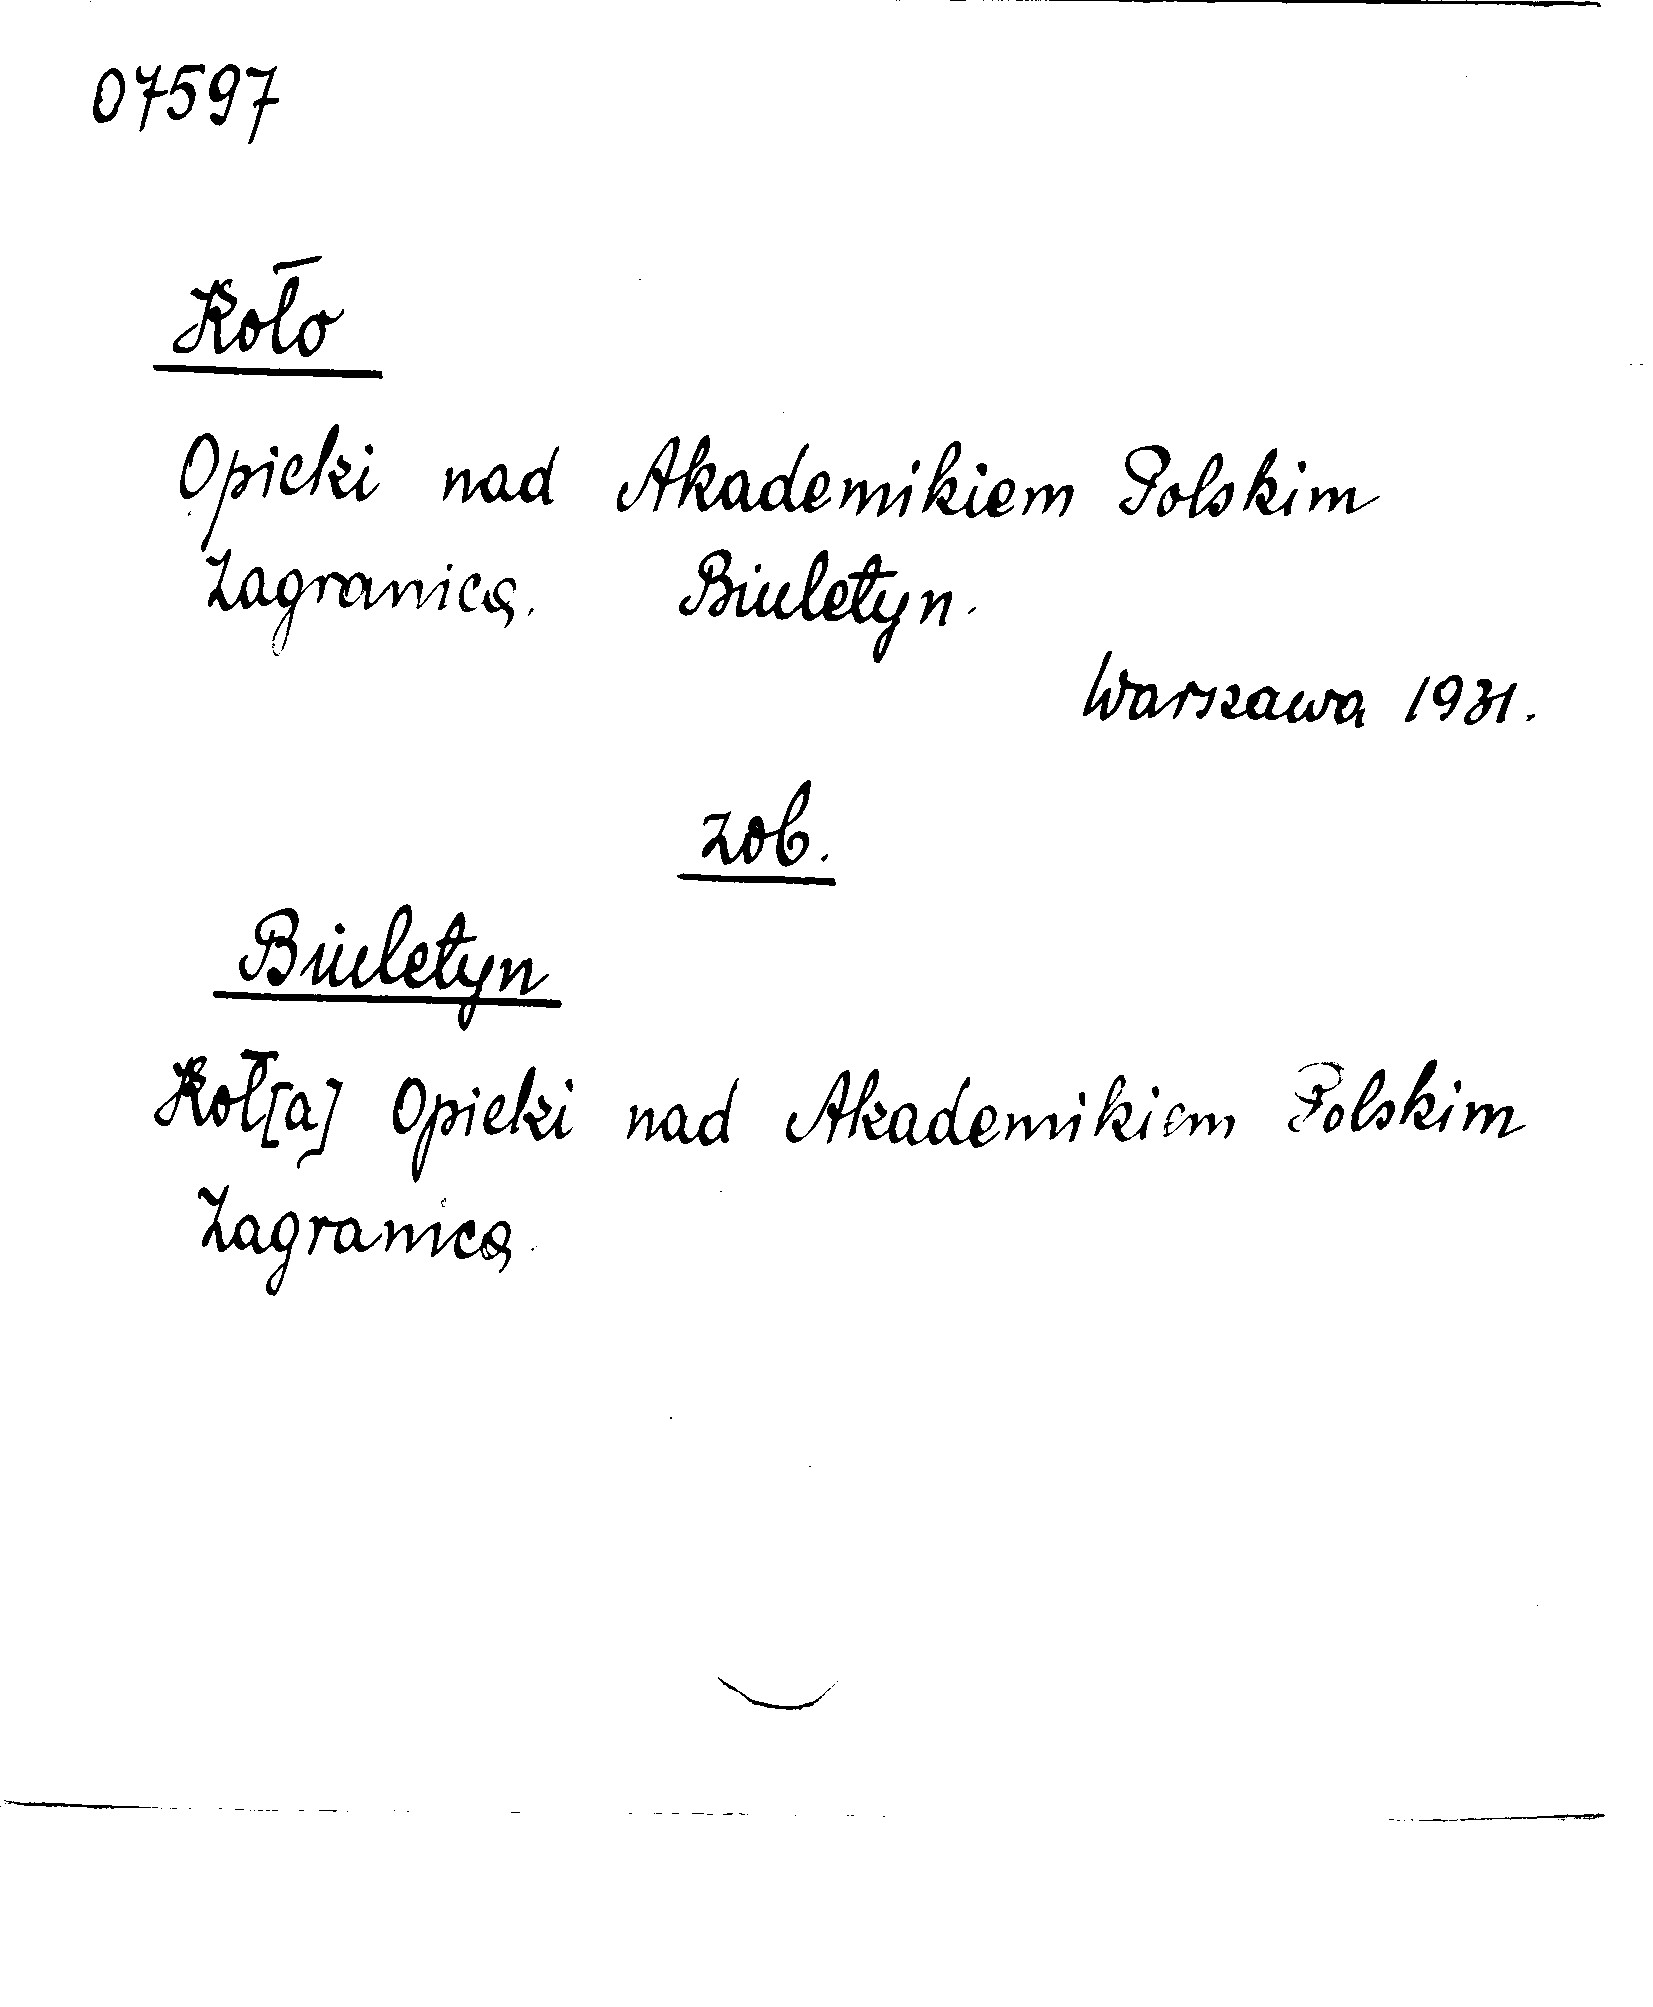 07597
Koło
Opieki nad Akademikiem Polskim
Zagranicą. Biuletyn.
Warszawa 1931.
zob.
Biuletyn
Koł[a] Opieki nad Akademikiem Polskim
Zagranicą.